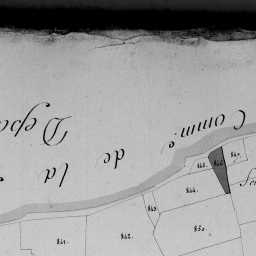 Comm.e
de
la
Dépa
845.
846
847.
844.
843.
841.
842.
850.